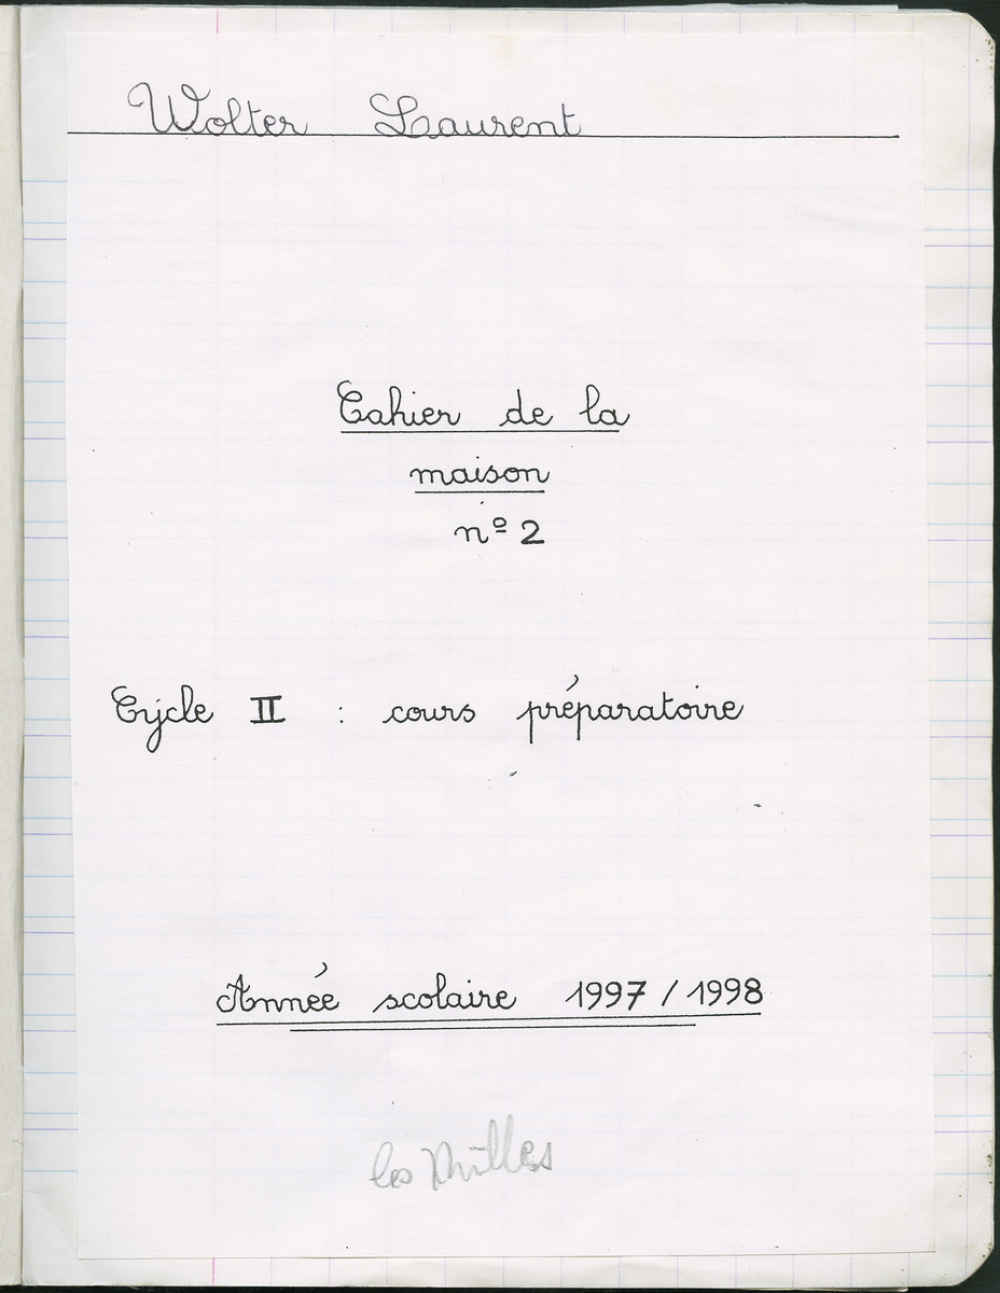 Wolter Laurent
Cahier de la
maison
nº 2
Cycle II : cours préparatoire
Année scolaire 1997 / 1998
les Milles